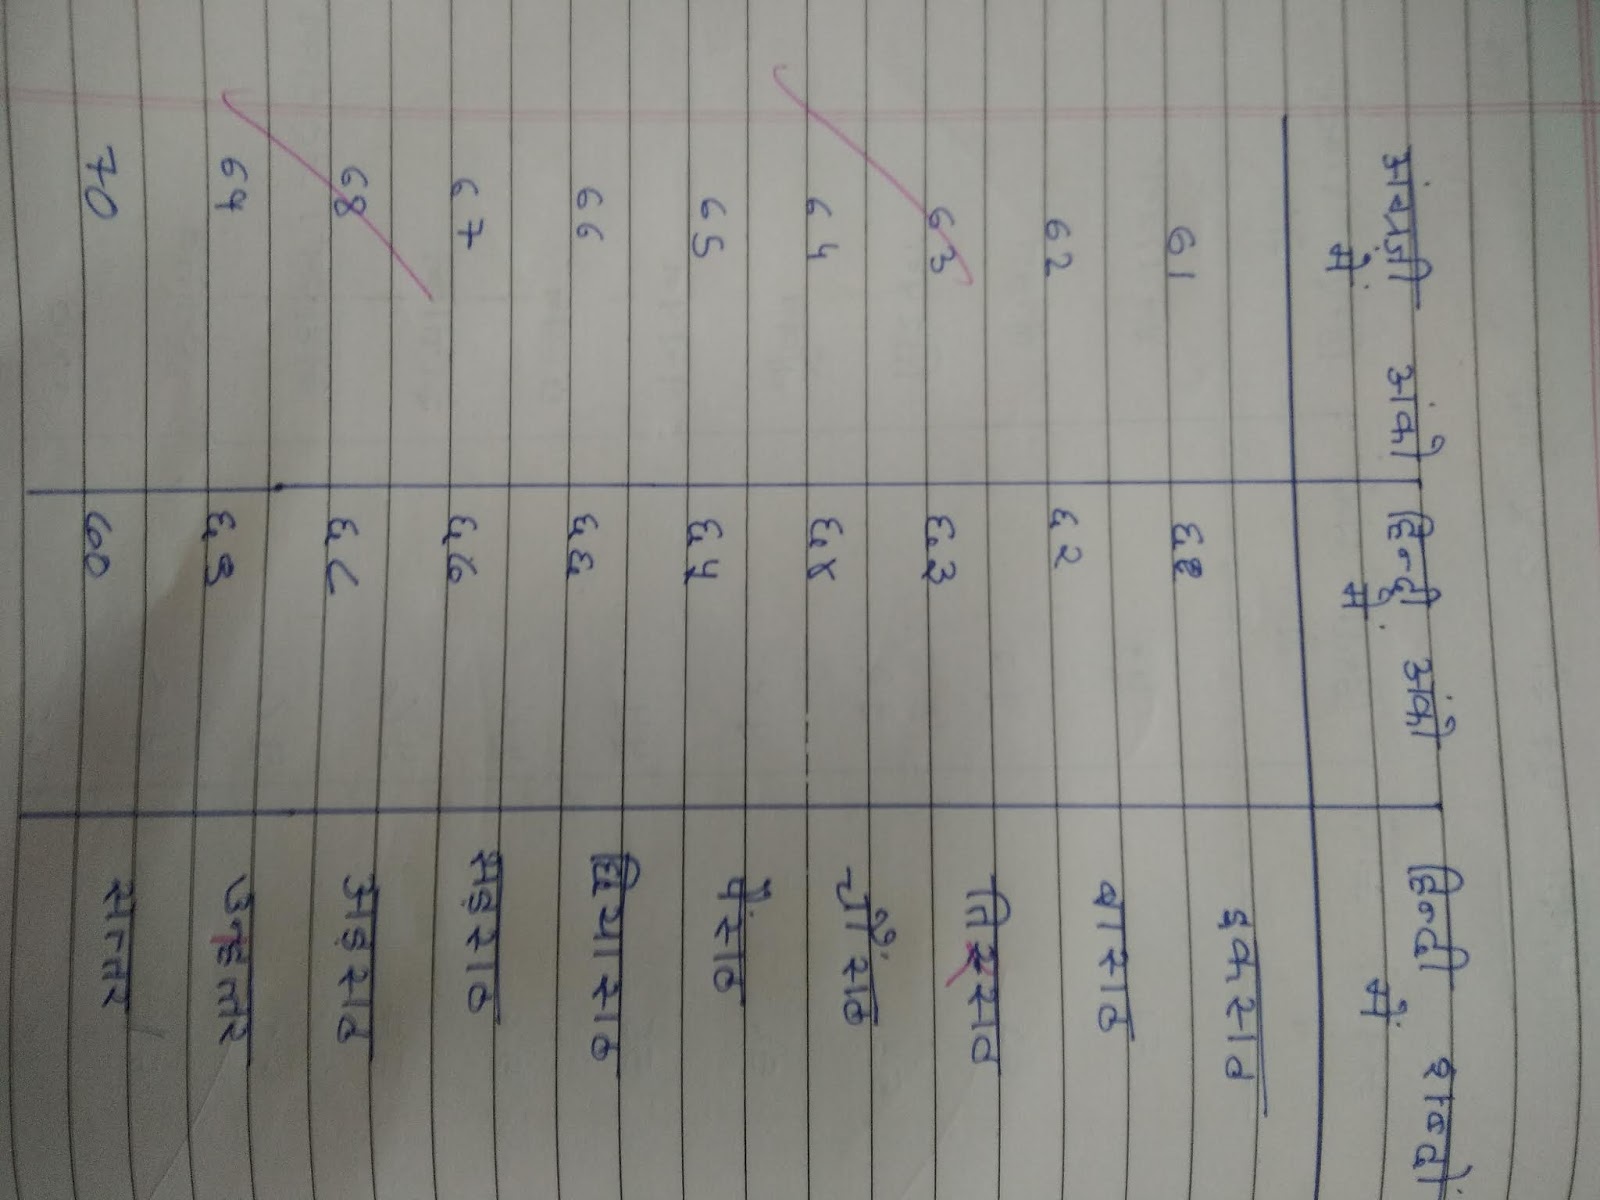 अंग्रेज़ी अंकों में हिन्दी अंकों में हिन्दी शब्दों में
61 ६१ इकसठ
62 ६२ बासठ
63 ६३ तिरसठ
64 ६४ चौंसठ
65 ६५ पैंसठ
66 ६६ छियासठ
67 ६७ सड़सठ
68 ६८ अड़सठ
69 ६९ उनहत्तर
70 ७० सत्तर